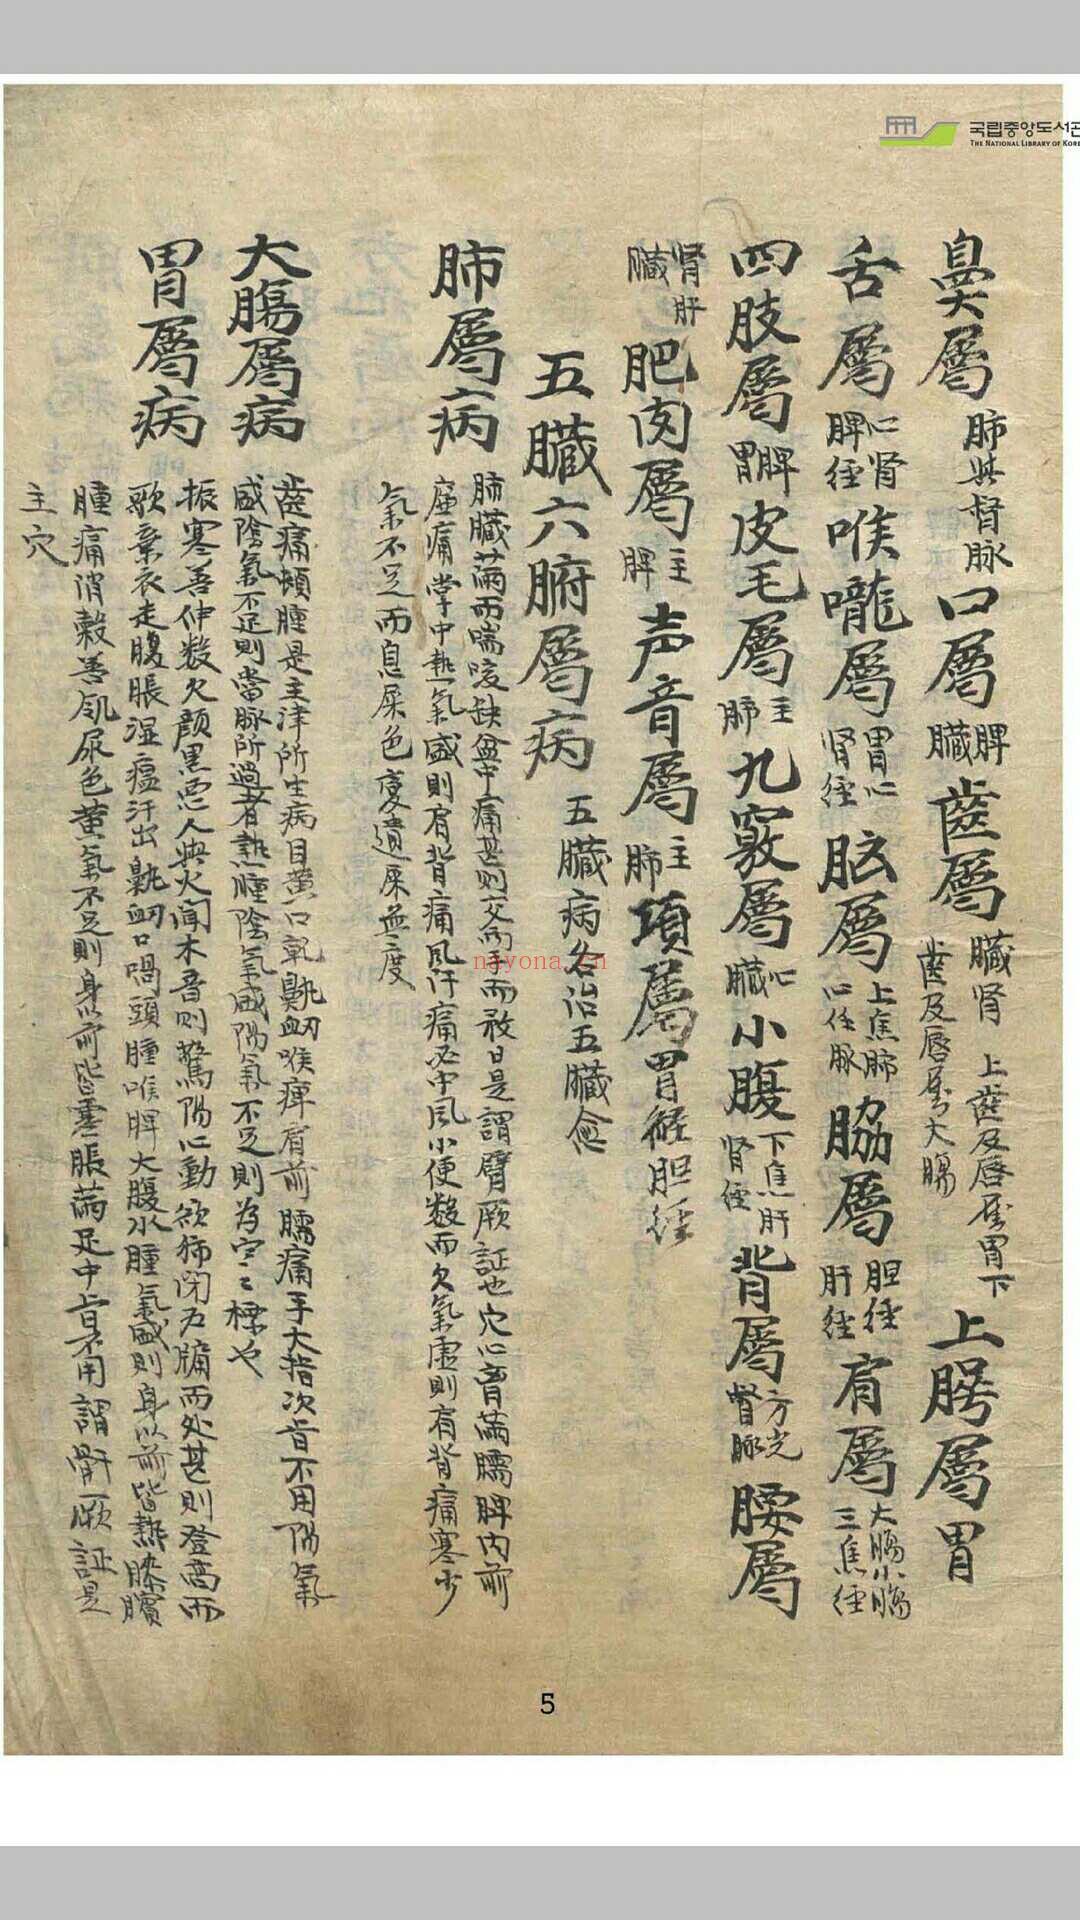 국립중앙도서관
THE NATIONAL LIBRARY OF KOREA
鼻屬 肺與督脉 口屬 脾臟 齒屬 臟腎 上齒及唇屬胃下齒及唇屬大腸 上腭屬胃
舌屬 心腎脾經 喉嚨屬 胃心腎經 胸屬 上焦肺心任脉 脇屬 胆經肝經 肩屬 大腸小腸三焦經
四肢屬 脾胃 皮毛屬 主肺 九竅屬 心臟 小腹 下焦肝腎經 背屬 方光督脉 腰屬
腎肝臟 肥肉屬 主脾 声音屬 主肺 項屬胃經胆經
五臟六腑屬病 五臟病各治五臟愈
肺屬病 肺臟滿而喘咳缺盆中痛甚則交兩手而敄日是謂臂厥証也穴心胷滿臑脾內前
廉痛掌中熱氣盛則肩背痛風汗痛必中風小便数而欠氣虛則肩背痛寒少
氣不足而息屎色変遺屎無度
大腸屬病 齒痛頰腫是主津所生病目黄口乾鼽衂喉痺肩前臑痛手大指次指不用陽氣
盛陰氣不足則當脉所過者熱腫陰氣盛陽氣不足則為
胃屬病 振寒善伸数欠顔黒惡人與火聞木音則驚陽心動欲獨閉戶牖而处甚則登高而
歌棄衣走腹脹湿瘟汗出鼽衂口喎頭腫喉脾大腹水腫氣盛則身以前皆熱膝臏
腫痛消穀善飢尿色黄氣不足則身以前皆寒脹滿足中指不用謂骭厥証是
主穴
nayona.cn
5